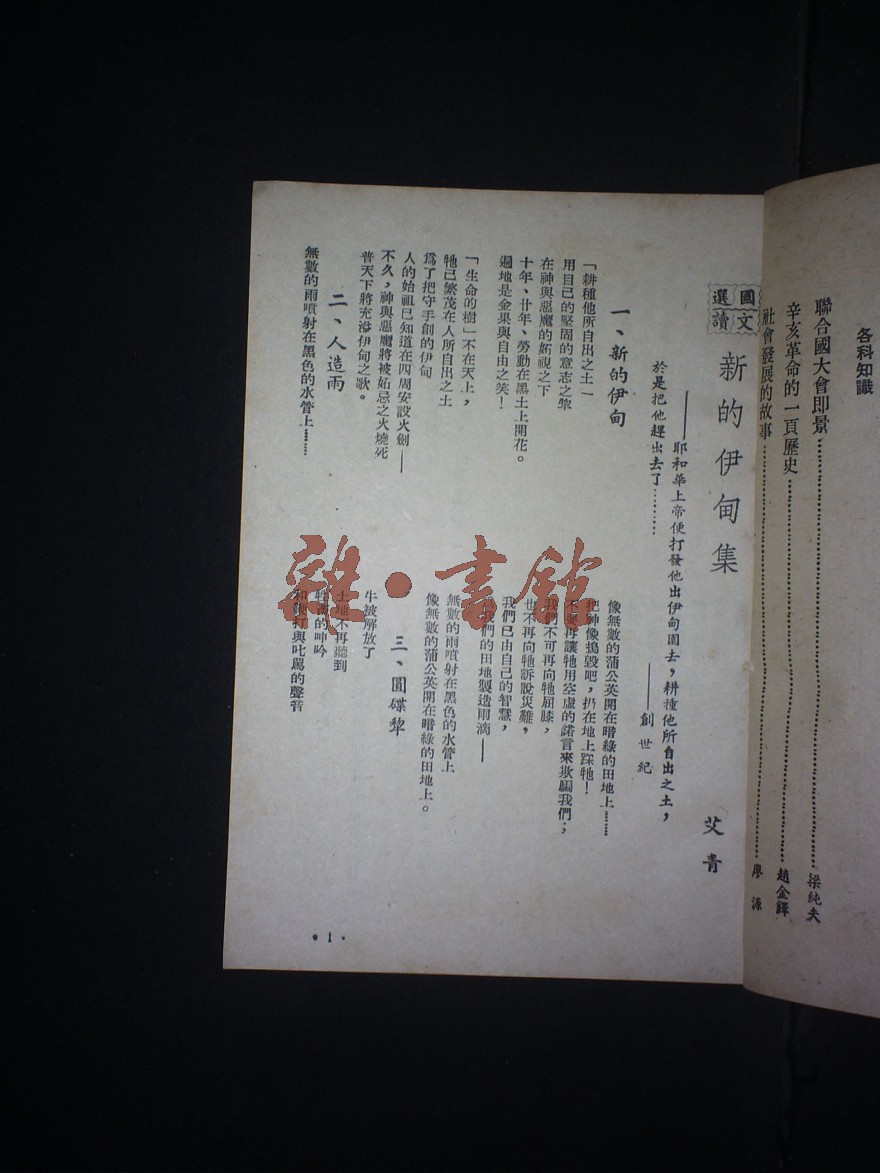 各科知識
聯合國大會即景……梁純夫
辛亥革命的一頁歷史……趙金鐸
社會發展的故事……廖源
國文
選讀
新的伊甸集
艾青
——耶和華上帝便打發他出伊甸園去，耕種他所自出之土，
於是把他趕出去了………
——創世紀
一、新的伊甸
「耕種他所自出之土—
用自己的堅固的意志之犂
在神與惡魔的妬視之下
十年、廿年、勞動在黑土上開花。
遍地是金果與自由之笑！
「生命的樹」不在天上，
牠已繁茂在人所自出之土
爲了把守手創的伊甸
人的始祖已知道在四周安設火劍——
不久，神與惡魔將被妬忌之火燒死
普天下將充溢伊甸之歌。
二、人造雨
無數的雨噴射在黑色的水管上……
像無數的蒲公英開在暗綠的田地上……
把神像搗毀吧，扔在地上踩牠！
不要再讓牠用空虛的諾言來欺騙我們；
我們不可再向牠屈膝，
也不再向牠訴說災難，
我們已由自己的智慧，
我們的田地製造雨滴——
無數的雨噴射在黑色的水管上
像無數的蒲公英開在暗綠的田地上。
三、圓碟犂
牛被解放了
土地不再聽到
的呻吟
和鞭打與叱罵的聲音
•1•
雜·書館